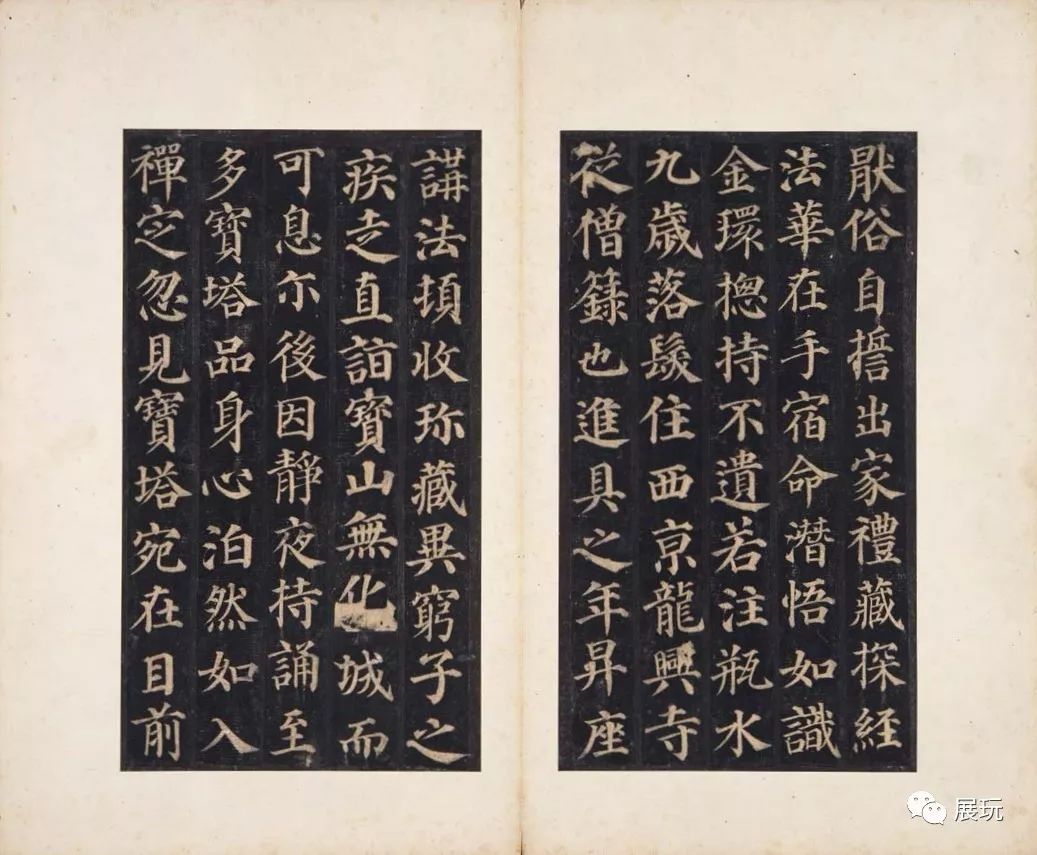 猒俗自誓出家禮藏探經
法華在手宿命潛悟如識
金環揔持不遺若注瓶水
九歲落髮住西京龍興寺
從僧籙也進具之年昇座
講法頓收珎藏異窮子之
疾走直詣寶山無化城而
可息尓後因靜夜持誦至
多寶塔品身心泊然如入
禪定忽見寶塔宛在目前
展玩